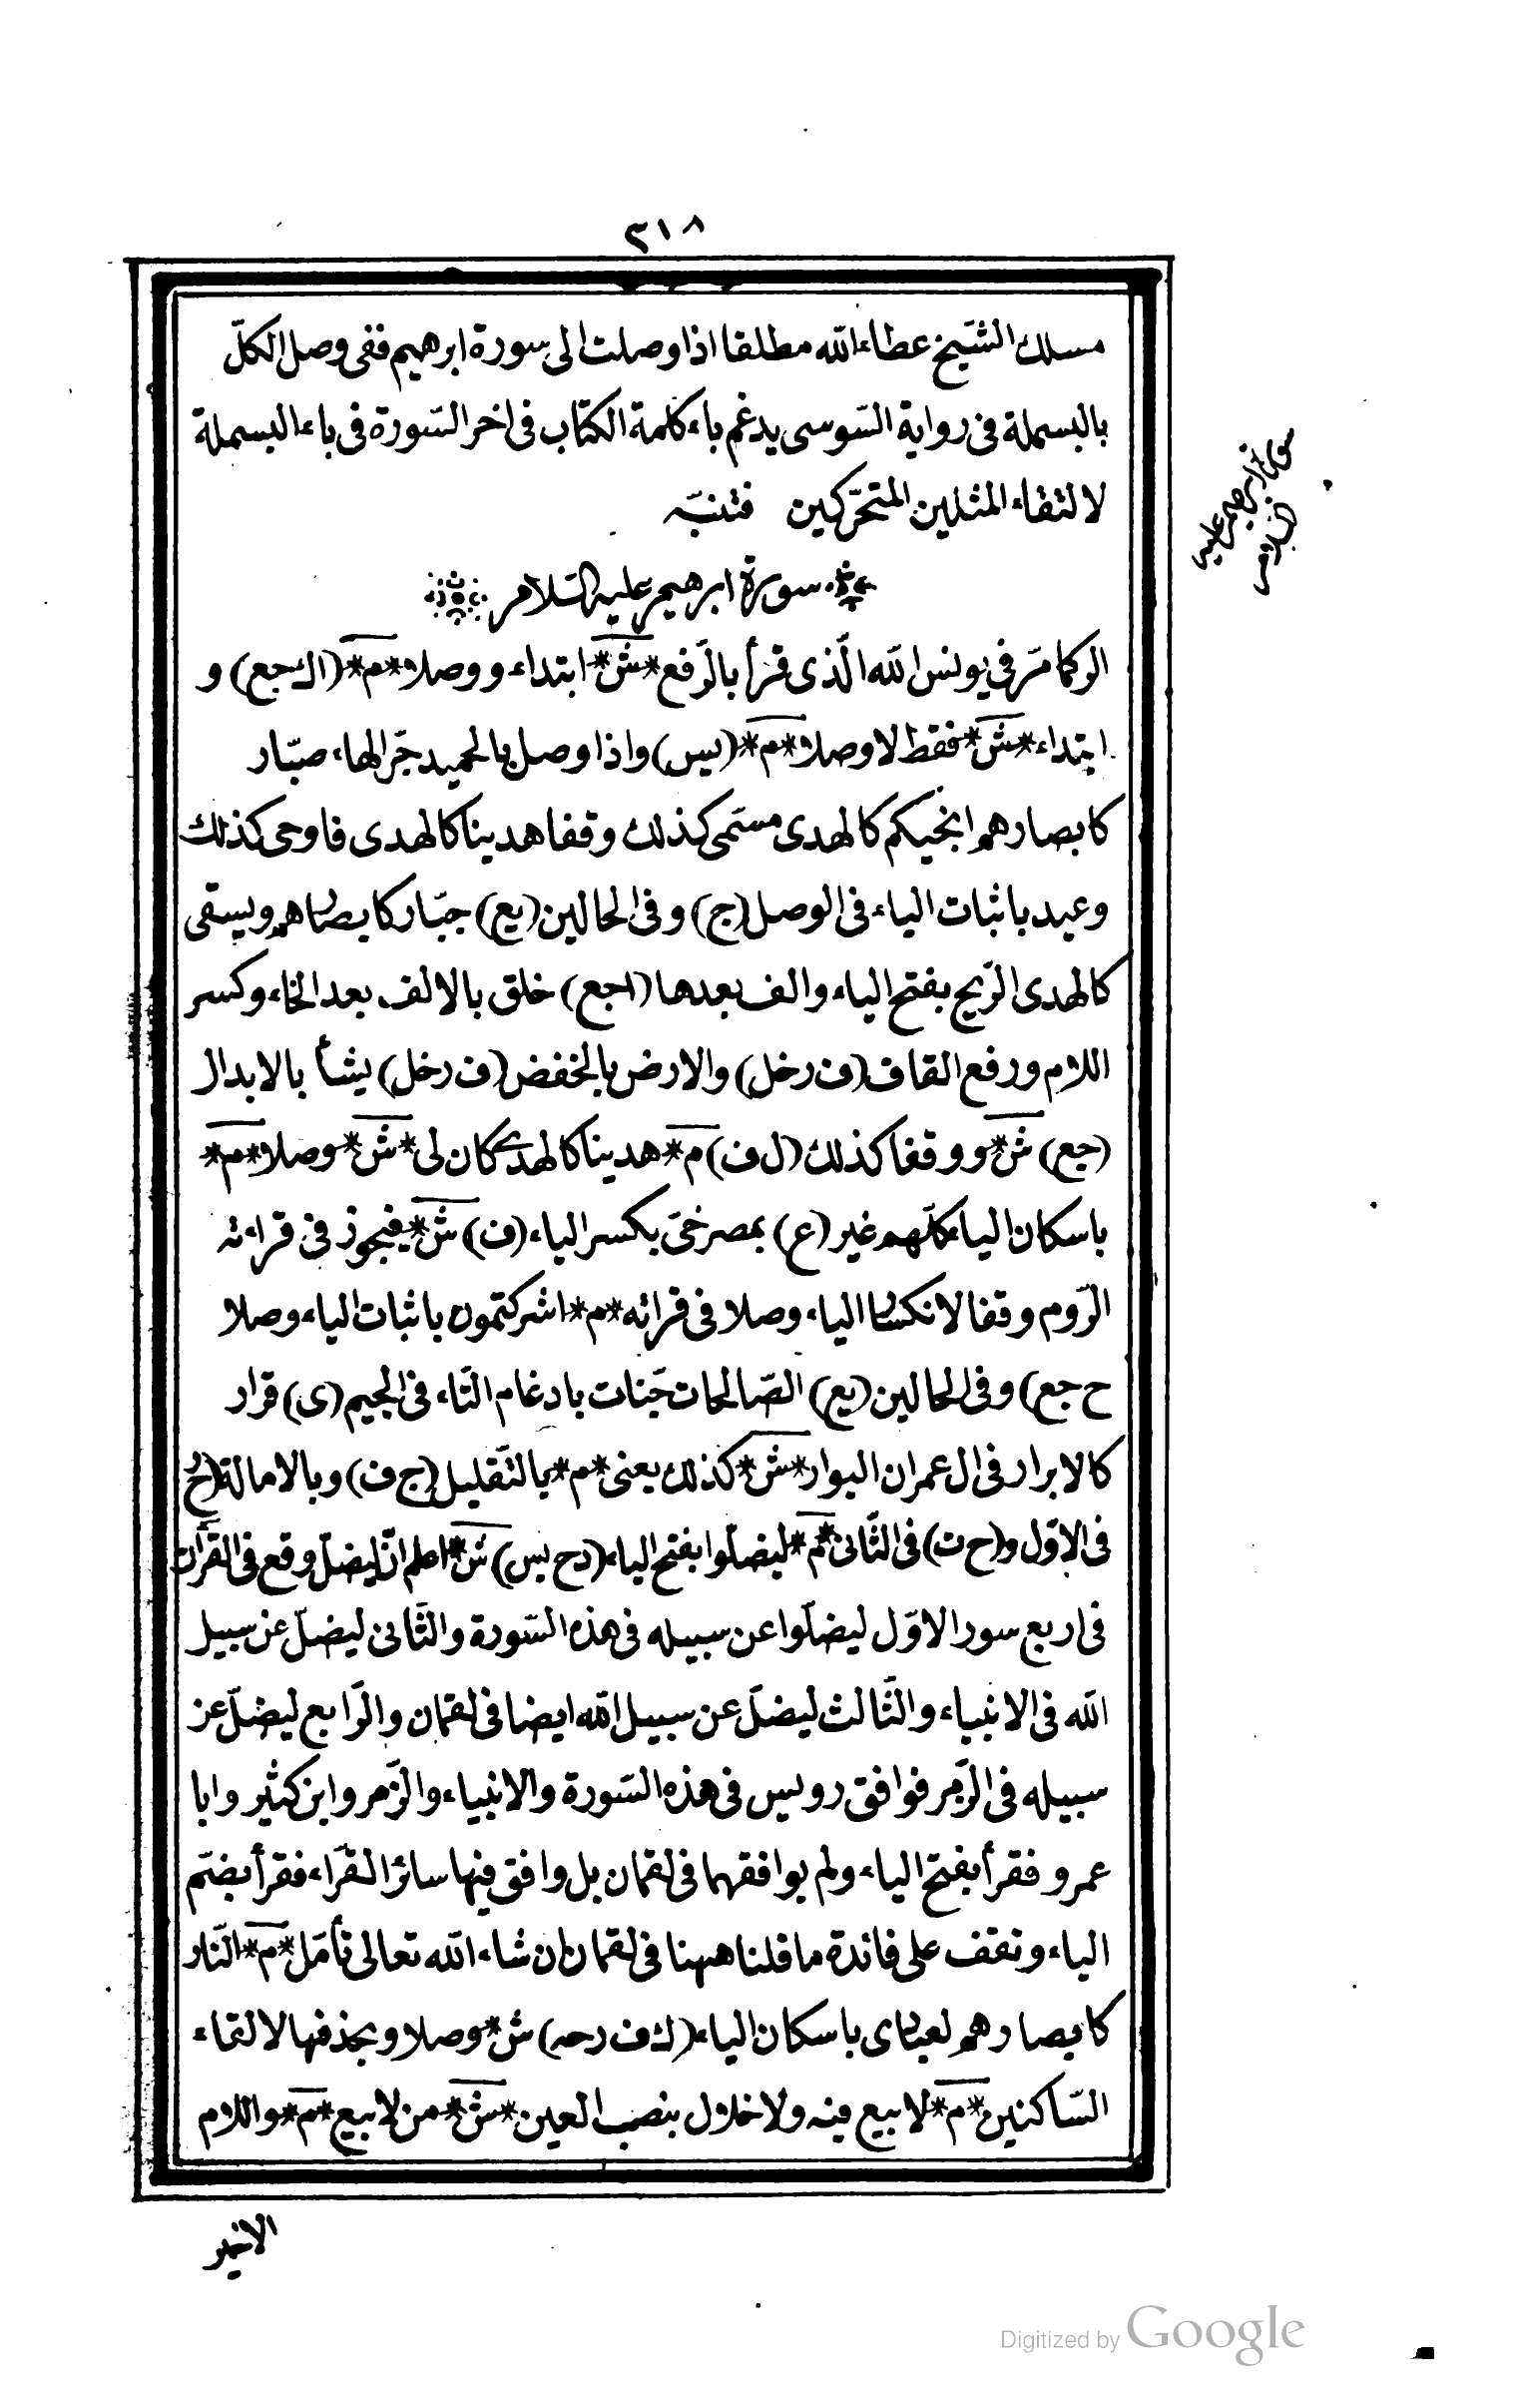 ٢١٨
مسلك الشّيخ عطاء الله مطلقا اذا وصلت الى سورة ابرهيم ففى وصل الكلّ
بالبسملة فى رواية السّوسى يدغم باء كلمة الكتاب فى اخر السّورة فى باء البسملة
لالتقاء المثلين المتحرّكين فتنبّه
سورة ابرهيم عليه السّلام
سورة ابرهيم عليه السّلام
الر كما مرّ فى يونس الله الّذى قرأ بالرّفع *ش* ابتداء ووصلا *م* (اك جع) و
ابتداء *ش* فقط لا وصلا *م* (يس) واذا وصل بالحميد جرّ الهاء صبّار
كابصارهم انجيكم كالهدى مسمّى كذلك وقفا هدينا كالهدى فاوحى كذلك
وعيد باثبات الياء فى الوصل (ج) وفى الحالين (يع) جبّار كابصارهم ويسقى
كالهدى الرّيح بفتح الياء والف بعدها (اجع) خلق بالالف بعد الخاء وكسر
اللام ورفع القاف (ف رخل) والارض بالخفض (ف رخل) يشأ بالابدال
(جع) ش* ووقفا كذلك (ل ف) م* هدينا كالهدى كان لى *ش* وصلا *م*
باسكان الياء كلّهم غير (ع) بمصرخىّ بكسر الياء (ف) ش* فيجوز فى قراءته
الرّوم وقفا لانكسار الياء وصلا فى قراته *م* اشركتمون باثبات الياء وصلا
ح جع) وفى الحالين (يع) الصّالحات جّنات بادغام التّاء فى الجيم (ى) قرار
كالابرار فى ال عمران البوار *ش* كذلك يعنى *م* بالتّقليل (ج ف) وبالامالة (ح
فى الاوّل و (ح ت) فى الثّانى *م* ليضلّوا بفتح الياء (دح يس) ش* اعلم انّ ليضلّ وقع فى القرأن
فى اربع سور الاوّل ليضلّوا عن سبيله فى هذه السّورة والثّانى ليضلّ عن سبيل
الله فى الانبياء والثّالث ليضلّ عن سبيل الله ايضا فى لقمان والرّابع ليضلّ عن
سبيله فى الزّمر فوافق رويس فى هذه السّورة والانبياء والزّمر وابن كثير وابا
عمرو فقرأ بفتح الياء ولم يوافقهما فى لقمان بل وافق فيها سائر القرّاء فقرأ بضمّ
الياء ونقف على فائدة ما قلنا ههنا فى لقمان ان شاء الله تعالى تأمّل *م* النّار
كابصارهم لعبادى باسكان الياء (ك ف رحه) ش* وصلا وبحذفها لالتقاء
السّاكنين *م* لا بيع فيه ولا خلال بنصب العين *ش* من لا بيع *م* واللام
الاخير
Digitized by Google